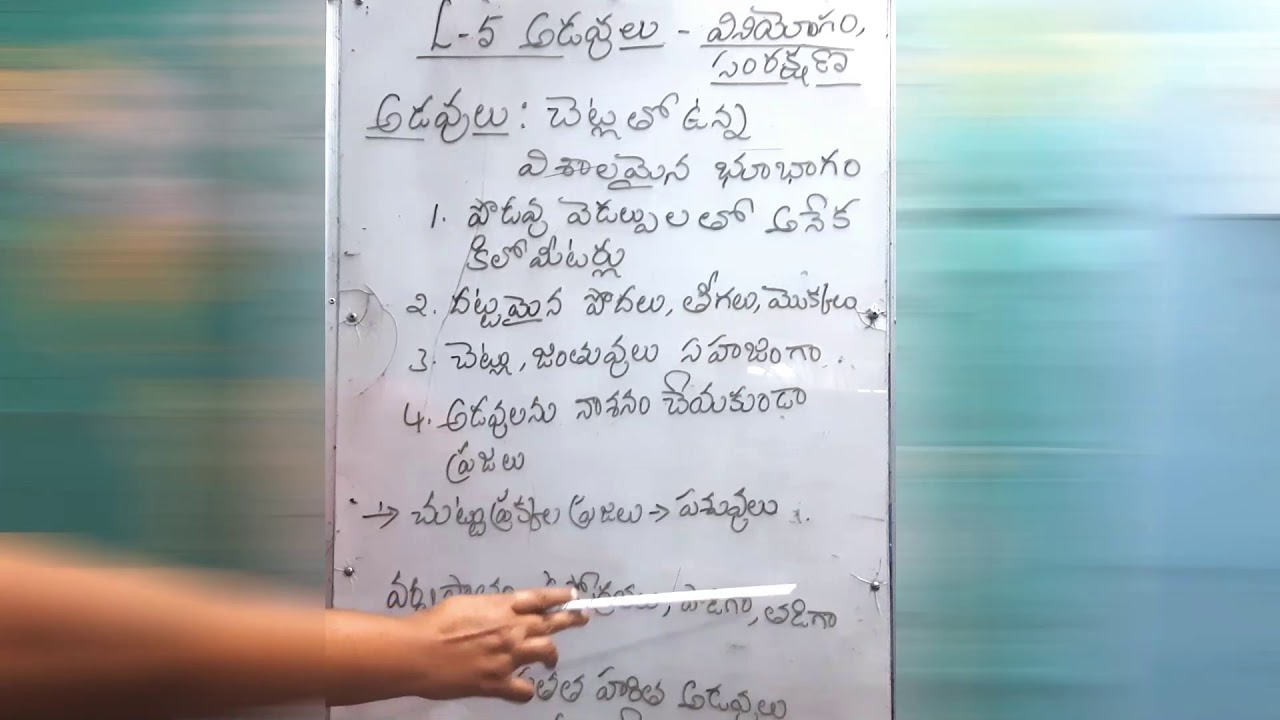 L-5 అడవులు - వినియోగం,
సంరక్షణ
అడవులు : చెట్లుతో ఉన్న
విశాలమైన భూభాగం
1. పొడవు వెడల్పులతో అనేక
కిలోమీటర్లు
2. దట్టమైన పొదలు, తీగలు, మొక్కలు
3. చెట్లు, జంతువులు సహజంగా .
4. అడవులను నాశనం చేయకుండా
ప్రజలు
→ చుట్టుప్రక్కల ప్రజలు → పశువులు .
పొడిగా, తడిగా
సతత హరిత అడవులు